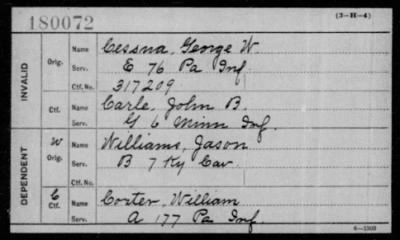 180072
(3-H-4)
INVALID
Orig.
Name Cessna, George W.
Serv. E 76 Pa Inf
Ctf. No. 317209
Ctf.
Name Carle, John B.
Serv. G 6 Minn Inf.
DEPENDENT
W
Orig.
Name Williams, Jason
Serv. B 7 Ky Cav.
Ctf. No.
C
Ctf.
Name Corter, William
Serv. A 177 Pa Inf